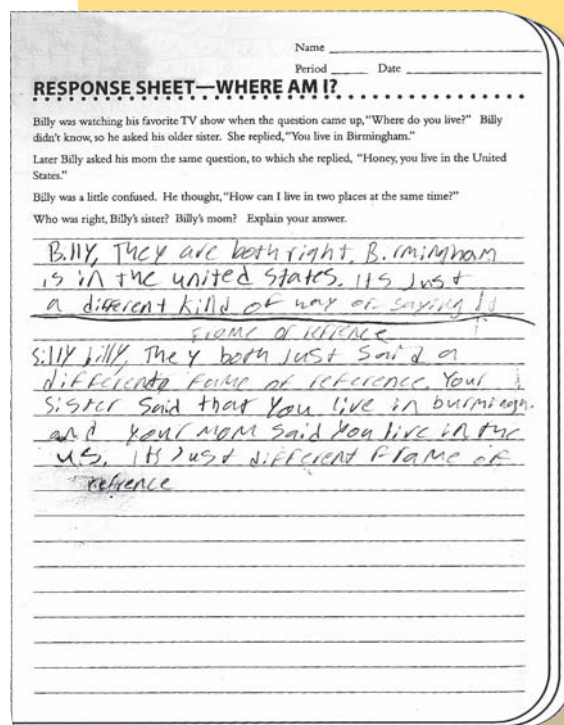 Name
Period Date
RESPONSE SHEET—WHERE AM I?
Billy was watching his favorite TV show when the question came up, "Where do you live?" Billy
didn't know, so he asked his older sister. She replied, "You live in Birmingham."
Later Billy asked his mom the same question, to which she replied, "Honey, you live in the United
States."
Billy was a little confused. He thought, "How can I live in two places at the same time?"
Who was right, Billy's sister? Billy's mom? Explain your answer.
Billy, They are both right. Birmingham
is in the united states. its Just
a different kind of way of saying It
Frame of refrence
Silly billy, They both Just said a
different fame of reference. Your
Sister said that you live in burmingh.
and your mom said you live in the
u.s. its Just different frame of
refrence